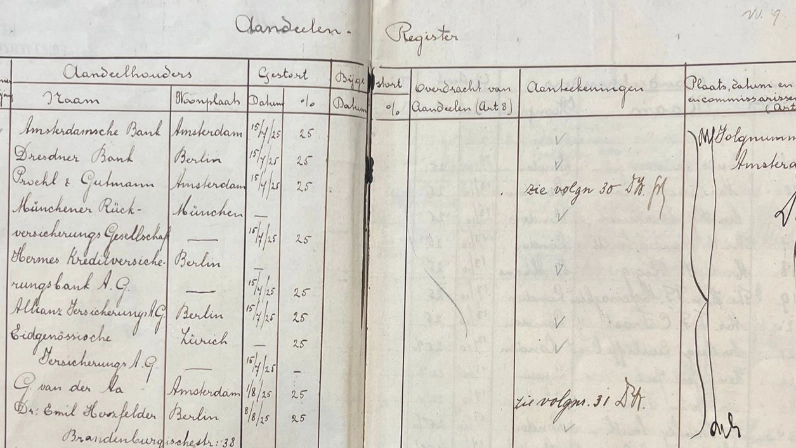 Aandeelen-
Register
VV. 9
Aandeelhouders Gestort Bijge stort Overdracht van Aandeelen (Art 8) Aanteekeningen Plaats, datum en
Naam Woonplaats Datum % Datum %
en commissarisse
(Art
Amsterdamsche Bank Amsterdam 15/7/25 25
Dresdner Bank Berlin 15/7/25 25
Proehl & Gutmann Amsterdam 15/7/25 25 zie volgn 30
Münchener Rück- München
versicherungs Gesellschaf 15/7/25 25
Hermes Kreditversiche- Berlin
rungsbank A.G. 15/7/25 25
Allianz Versicherungs A.G Berlin 15/7/25 25
Eidgenössische Zürich 25
Versicherungs A.G. 15/7/25 -
G. van der Aa Amsterdam 1/8/25 25
Dr: Emil Herzfelder Berlin 8/8/25 25 zie volgnr. 31
Brandenburgischestr: 38
Volgnumm
Amsterda